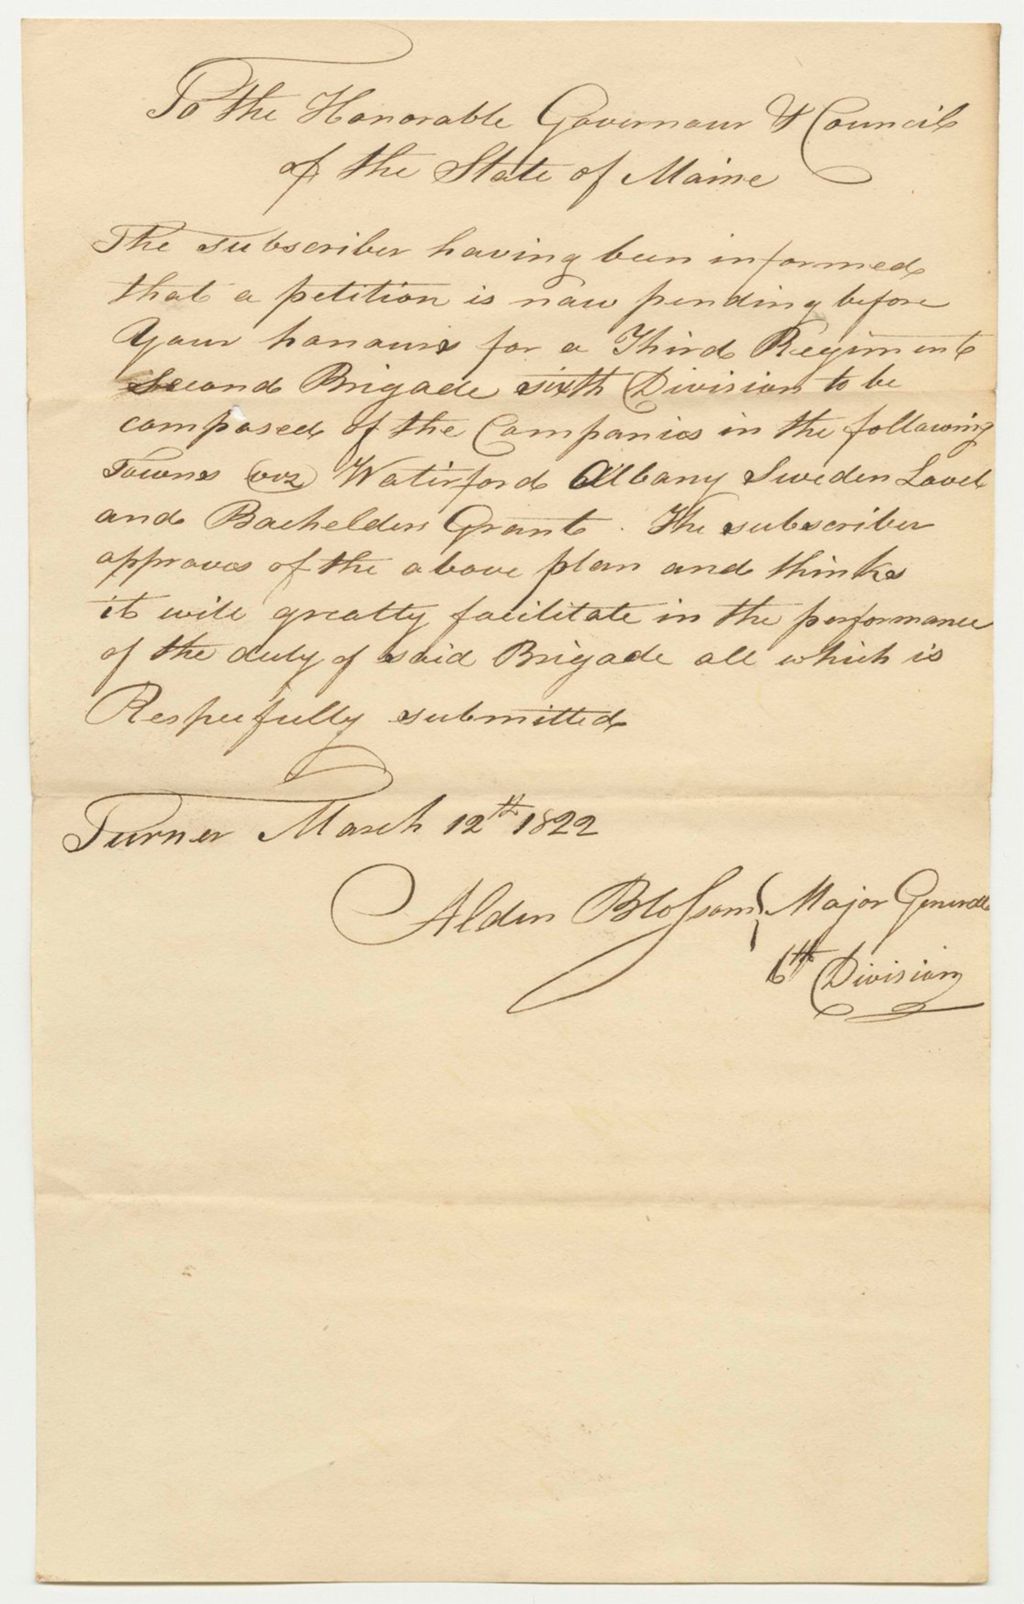 To the Honorable Governour & Council
of the State of Maine
The subscriber having been informed
that a petition is now pending before
Your honours for a Third Regiment
Second Brigade sixth Division to be
composed of the Companies in the following
Towns (viz) Waterford Albany Sweden Lovel
and Bachelders Grant. The subscriber
approves of the above plan and thinks
it will greatly facilitate in the performance
of the duty of said Brigade all which is
Respecfully submitted
Turner March 12th 1822
Alden Blossom } Major General
6th Division